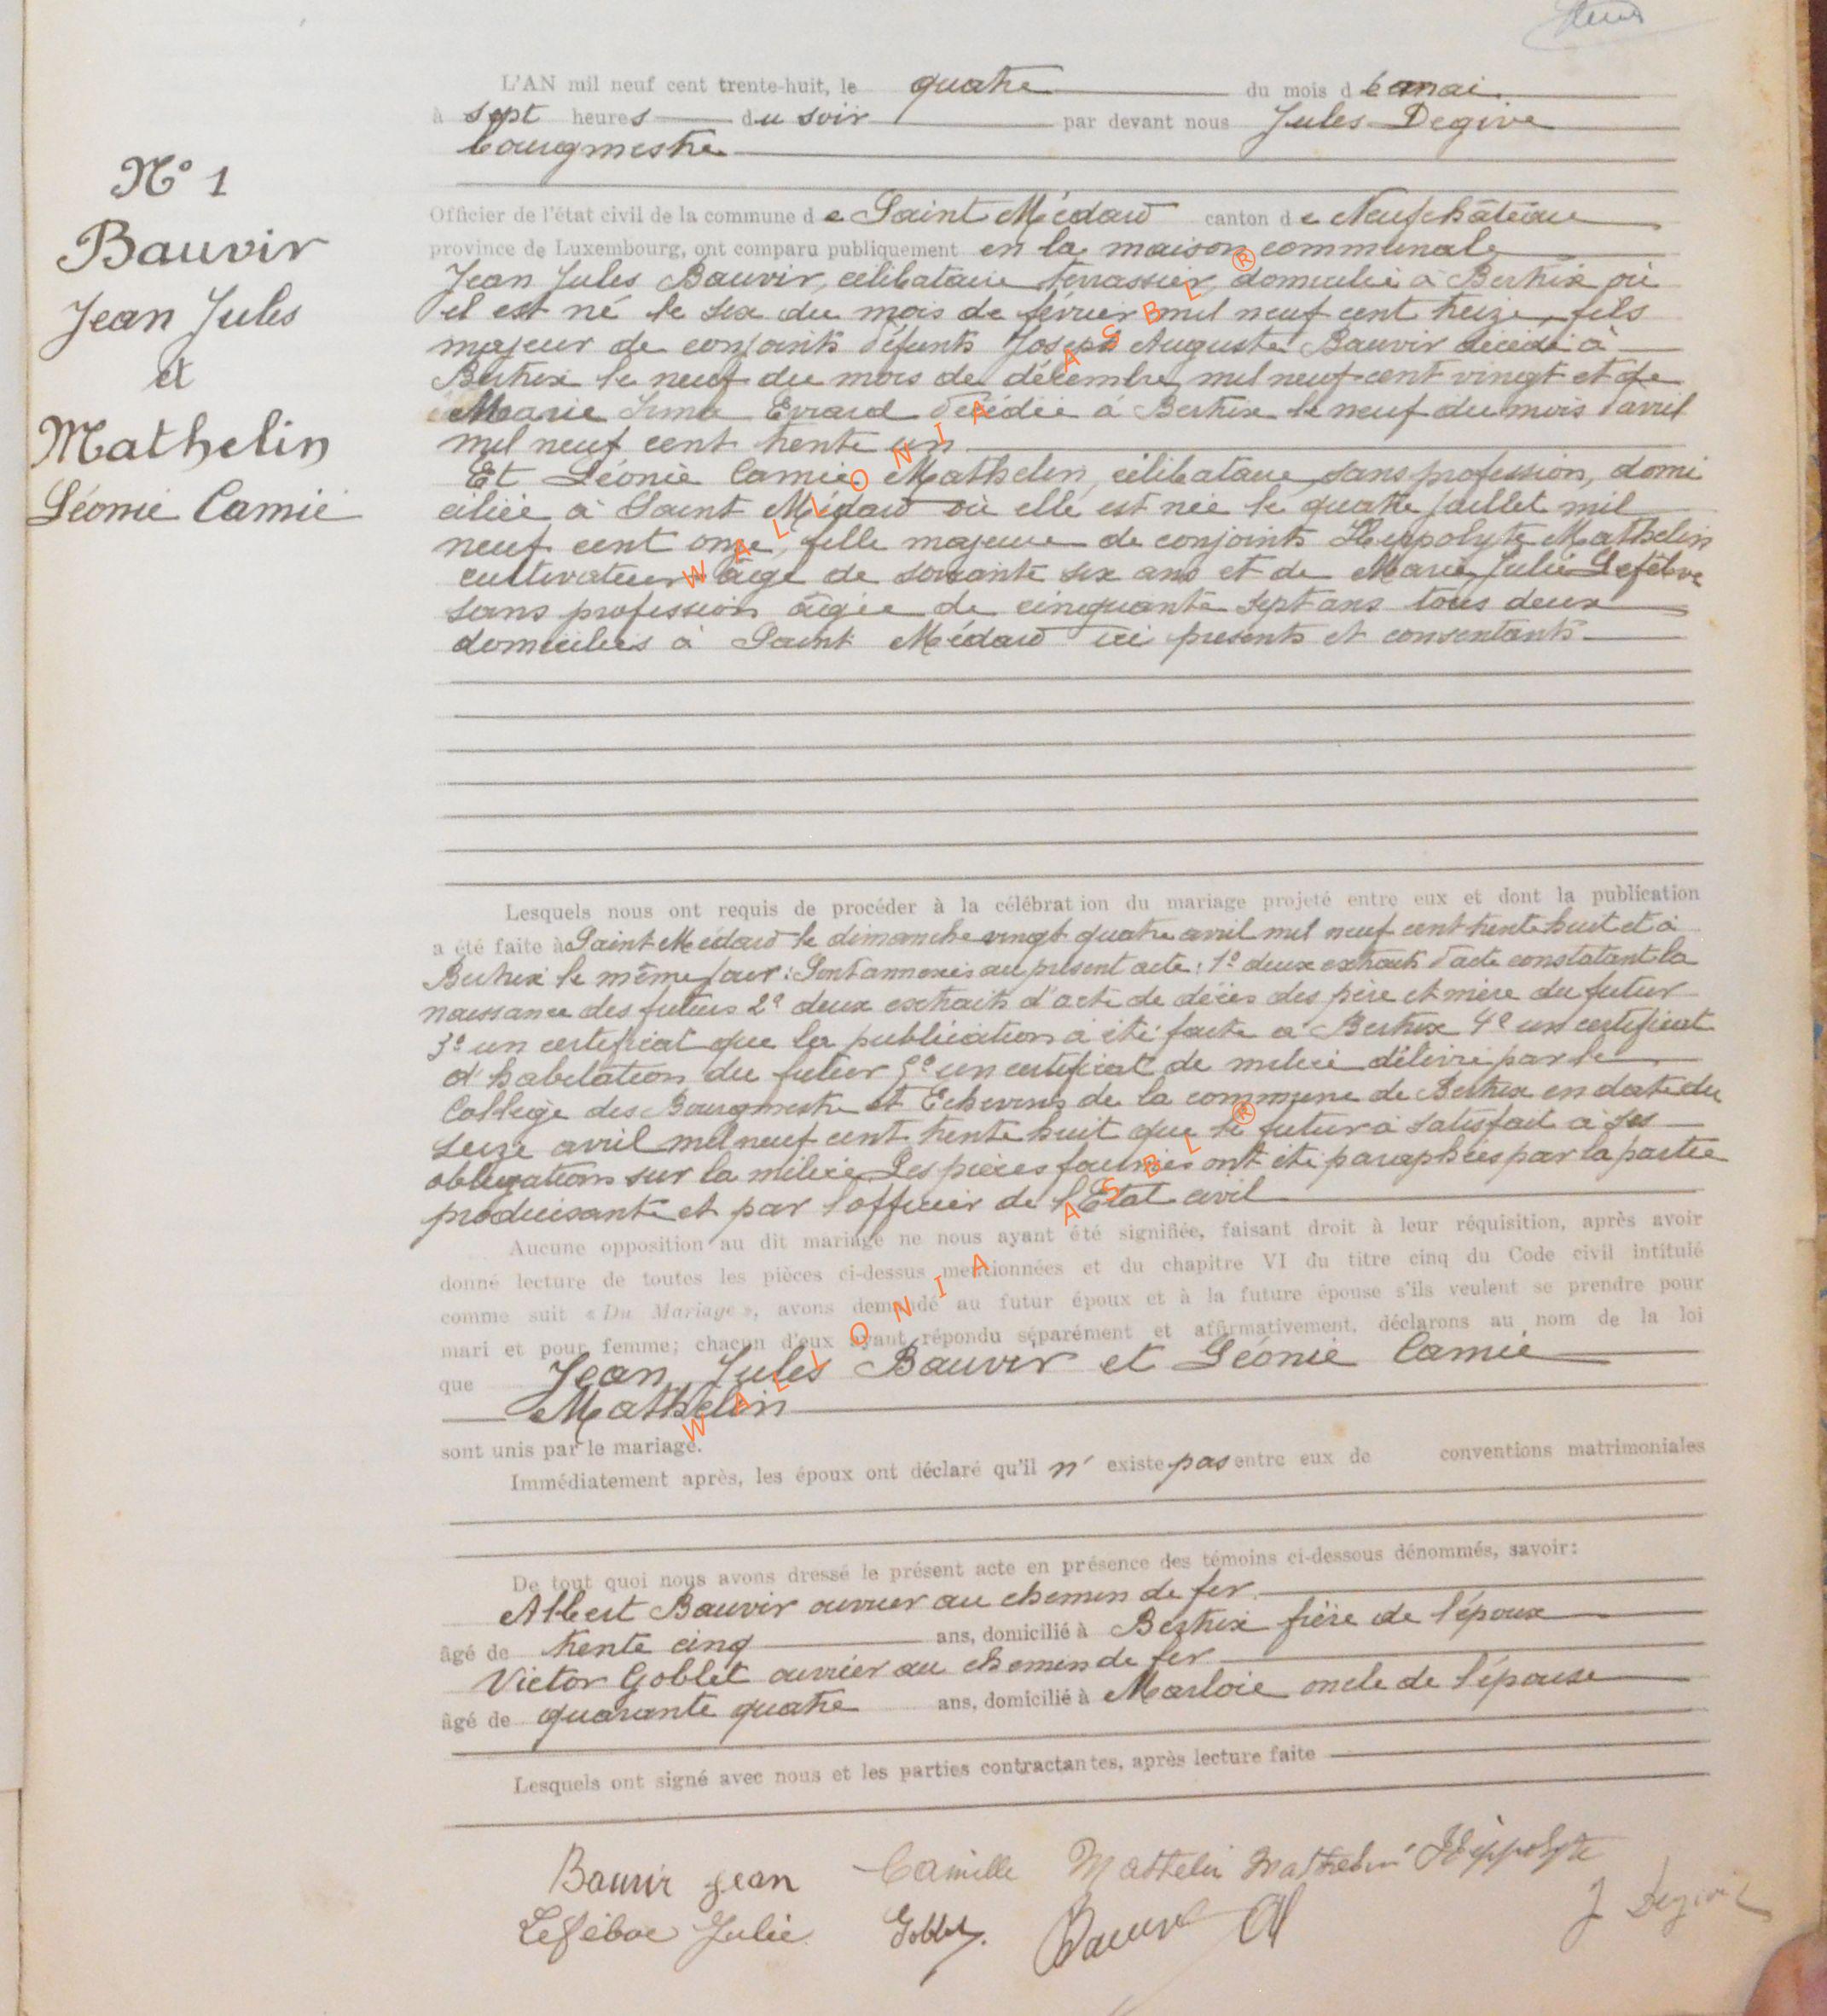 L'AN mil neuf cent trente-huit, le quatre du mois de mai
à sept heures du soir par devant nous Jules Degive
bourgmestre
Officier de l'état civil de la commune de Saint Médard canton de Neufchâteau
province de Luxembourg, ont comparu publiquement en la maison communale
Jean Jules Bauvir, célibataire terrassier, domicilié à Bertrix où
il est né le six du mois de février mil neuf cent treize, fils
majeur de conjoints défunts Joseph Auguste Bauvir décédé à
Bertrix le neuf du mois de décembre mil neuf cent vingt et de
Marie Irma Evrard décédée à Bertrix le neuf du mois d'avril
mil neuf cent trente un
Et Léonie Camie Mathelin, célibataire, sans profession, domi
ciliée à Saint Médard où elle est née le quatre juillet mil
neuf cent onze, fille majeure de conjoints Hippolyte Mathelin
cultivateur âgé de soixante six ans et de Marie Julie Lefèbvre
sans profession âgée de cinquante sept ans tous deux
domiciliés à Saint Médard ici présents et consentants
Lesquels nous ont requis de procéder à la célébration du mariage projeté entre eux et dont la publication
a été faite à Saint Médard le dimanche vingt quatre avril mil neuf cent trente huit et à
Bertrix le même jour : Sont annexés au présent acte : 1° deux extraits d'acte constatant la
naissance des futurs 2° deux extraits d'acte de décès des père et mère du futur
3° un certificat que la publication a été faite à Bertrix 4° un certificat
d'habitation du futur 5° un certificat de milice délivré par le
Collège des Bourgmestre et Echevins de la commune de Bertrix en date du
seize avril mil neuf cent trente huit que le futur a satisfait à ses
obligations sur la milice Les pièces fournies ont été paraphées par la partie
produisante et par l'officier de l'Etat civil
Aucune opposition au dit mariage ne nous ayant été signifiée, faisant droit à leur réquisition, après avoir
donné lecture de toutes les pièces ci-dessus mentionnées et du chapitre VI du titre cinq du Code civil intitulé
comme suit « Du Mariage », avons demandé au futur époux et à la future épouse s'ils veulent se prendre pour
mari et pour femme; chacun d'eux ayant répondu séparément et affirmativement, déclarons au nom de la loi
que Jean Jules Bauvir et Léonie Camie
Mathelin
sont unis par le mariage.
Immédiatement après, les époux ont déclaré qu'il n' existe pas entre eux de conventions matrimoniales
De tout quoi nous avons dressé le présent acte en présence des témoins ci-dessous dénommés, savoir:
Albert Bauvir ouvrier au chemin de fer
âgé de trente cinq ans, domicilié à Bertrix frère de l'époux
Victor Goblet ouvrier au chemin de fer
âgé de quarante quatre ans, domicilié à Marloie oncle de l'épouse
Lesquels ont signé avec nous et les parties contractantes, après lecture faite
Bauvir Jean Camille Mathelin Mathelin Hippolyte
Lefèbvre Julie Goblet Bauvir Al J Degive
N° 1
Bauvir
Jean Jules
et
Mathelin
Léonie Camie
WALLONIA ASBL ®
WALLONIA ASBL ®